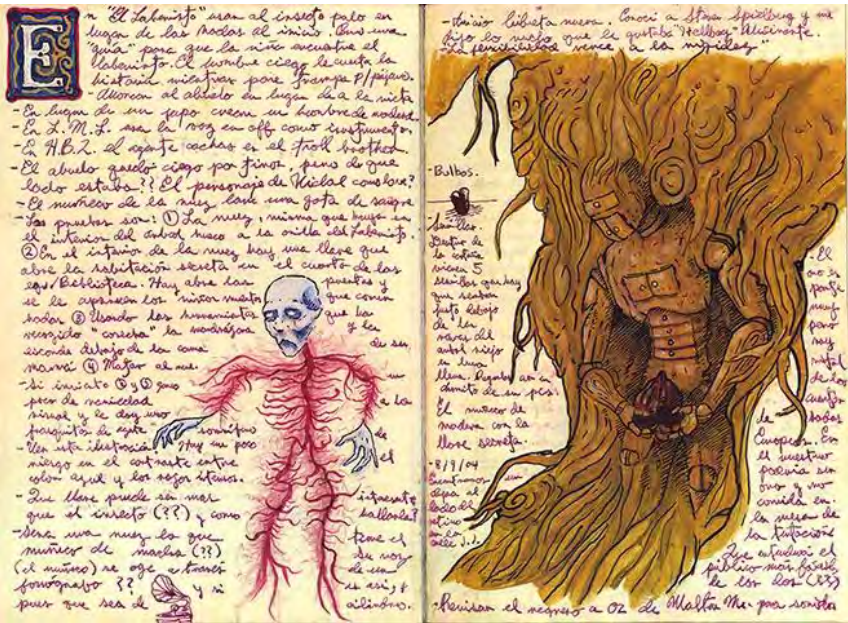 En "El Laberinto" usan al insecto palo en
lugar de las hadas al inicio. Como una
"guía" para que la niña encuentre el
laberinto. El hombre ciego le cuenta la
historia mientras pone trampa p/pájaro.
- Ahorcan al abuelo en lugar de a la nieta
- En lugar de un sapo crean un hombre de madera.
- En L.M.L. usa la voz en off como instrumento.
- En H.B.2. el agente cachas es el troll brother
- El abuelo quedó ciego por tiros, pero de que
lado estaba?? El personaje de Vidal
- El muñeco de la nuez lame una gota de sangre
- Las pruebas son: ① La nuez, misma que
el interior del arbol hueco a la orilla del Laberinto.
② En el interior de la nuez hay una llave que
abre la habitación secreta en el cuarto de los
Biblioteca. Hay abre las puertas y
se le aparecen los niños muertos que comen
hadas ③ Usando las herramientas que ha
recogido "cosecha" la mandrágora y la
esconde debajo de la cama de su
mamá ④ Matar al
- Si invierto ② y ③ gano
peso de a la
y le doy uno
- Ven esta ilustración Hay un poco de
riesgo en el contraste entre el
color azul y los rojos
- Que llave puede ser mas interesante
que el insecto (??) y como hallarla?
- Sera una nuez lo que tiene el
muñeco de madera (??) Su voz
(el muñeco) se oye a traves de un
fonógrafo ?? y si es asi,
pues que sea de cilindro.
- Inicio libreta nueva. Conocí a Steven Spielberg y me
dijo lo mucho que le gustaba "Hellboy" Alucinante.
- "La flexibilidad vence a la rigidez"
- Bulbos.
- Semillas.
Dentro de
la
vienen 5
semillas que hay
que sembrar
justo debajo
de las
raices del
arbol viejo
Llave. Pegada con un
de su piel.
El muñeco de
madera con la
llave secreta.
- 8/9/04
Encontramos un
al
lado del
en la
calle J.J.
El
oro es
parte
muy
pero
muy
vital
de los
cuentos
de hadas
Europeos. En
el nuestro
podría ser
oro y no
comida en
la mesa de
la tentación
Que entenderá el
público más fácil,
de los dos (??)
- Revisar el regreso a OZ de Walter Mu. para sonidos